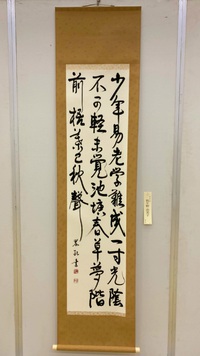 少年易老学難成一寸光陰
不可軽未覚池塘春草夢階
前梧葉已秋聲